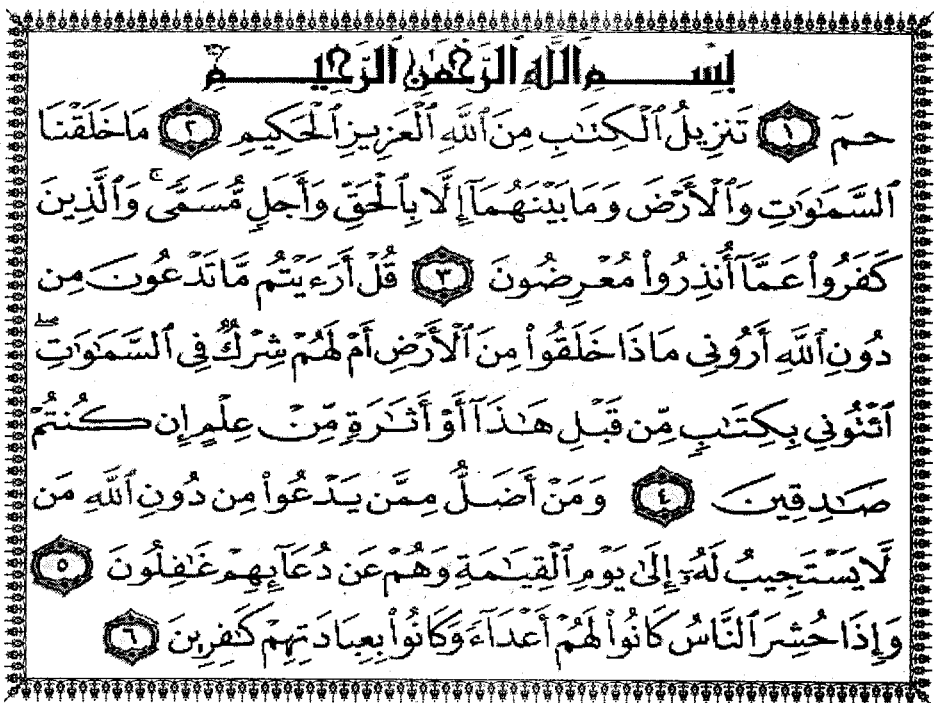 بِسْمِ ٱللَّهِ ٱلرَّحْمَٰنِ ٱلرَّحِيمِ
حمٓ ١ تَنزِيلُ ٱلْكِتَٰبِ مِنَ ٱللَّهِ ٱلْعَزِيزِ ٱلْحَكِيمِ ٢ مَا خَلَقْنَا
ٱلسَّمَٰوَٰتِ وَٱلْأَرْضَ وَمَا بَيْنَهُمَآ إِلَّا بِٱلْحَقِّ وَأَجَلٍ مُّسَمًّى ۚ وَٱلَّذِينَ
كَفَرُوا۟ عَمَّآ أُنذِرُوا۟ مُعْرِضُونَ ٣ قُلْ أَرَءَيْتُم مَّا تَدْعُونَ مِن
دُونِ ٱللَّهِ أَرُونِى مَاذَا خَلَقُوا۟ مِنَ ٱلْأَرْضِ أَمْ لَهُمْ شِرْكٌ فِى ٱلسَّمَٰوَٰتِ ۖ
ٱئْتُونِى بِكِتَٰبٍ مِّن قَبْلِ هَٰذَآ أَوْ أَثَٰرَةٍ مِّنْ عِلْمٍ إِن كُنتُمْ
صَٰدِقِينَ ٤ وَمَنْ أَضَلُّ مِمَّن يَدْعُوا۟ مِن دُونِ ٱللَّهِ مَن
لَّا يَسْتَجِيبُ لَهُۥٓ إِلَىٰ يَوْمِ ٱلْقِيَٰمَةِ وَهُمْ عَن دُعَآئِهِمْ غَٰفِلُونَ ٥
وَإِذَا حُشِرَ ٱلنَّاسُ كَانُوا۟ لَهُمْ أَعْدَآءً وَكَانُوا۟ بِعِبَادَتِهِمْ كَٰفِرِينَ ٦